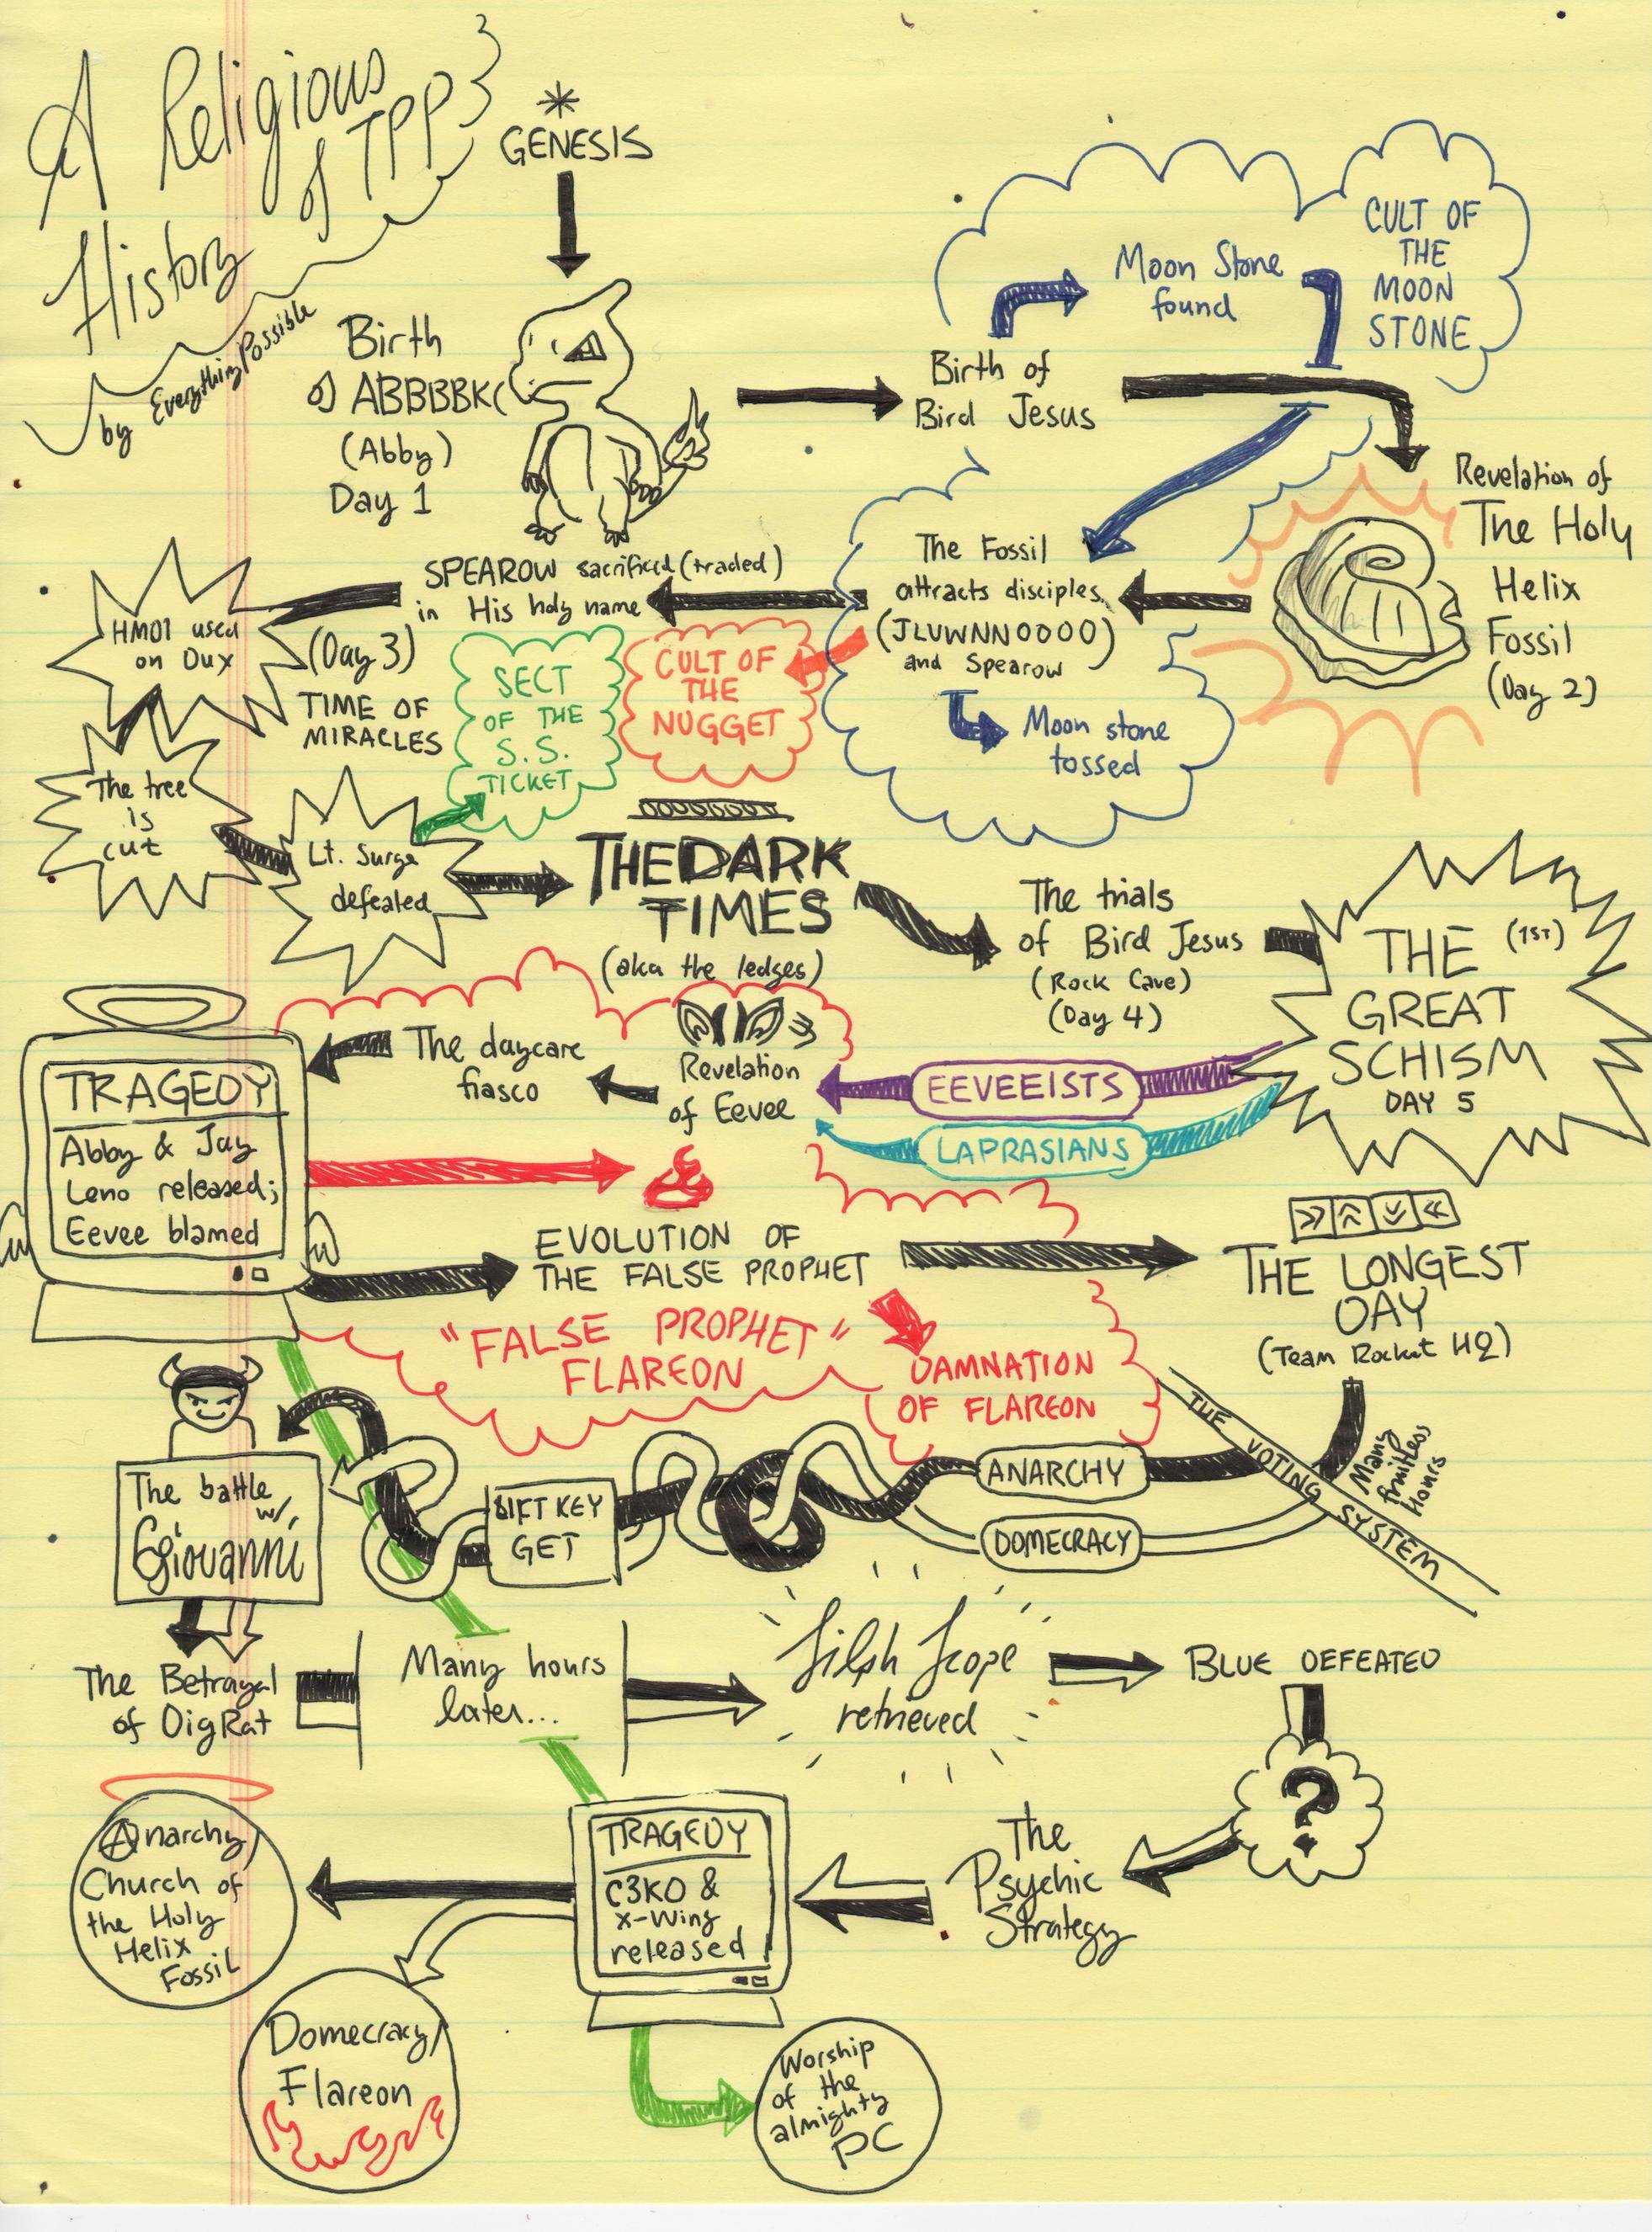 A Religious
History
of TPP
by EverythingPossible
GENESIS
Birth
of ABBBBBK(
(Abby)
Day 1
Birth of
Bird Jesus
Moon Stone
found
CULT OF
THE
MOON
STONE
Revelation of
The Holy
Helix
Fossil
(Day 2)
The Fossil
attracts disciples
(JLVWNNOOOO)
and Spearow
Moon stone
tossed
CULT OF
THE
NUGGET
SPEAROW sacrificed (traded)
in His holy name
(Day 3)
TIME OF
MIRACLES
HM01 used
on Dux
The tree
is
cut
Lt. Surge
defeated
SECT
OF THE
S.S.
TICKET
THE DARK
TIMES
(aka the ledges)
The trials
of Bird Jesus
(Rock Cave)
(Day 4)
THE (1ST)
GREAT
SCHISM
DAY 5
EEVEEISTS
LAPRASIANS
Revelation
of Eevee
The daycare
fiasco
TRAGEDY
Abby & Jay
Leno released;
Eevee blamed
EVOLUTION OF
THE FALSE PROPHET
"FALSE PROPHET"
FLAREON
DAMNATION
OF FLAREON
THE LONGEST
DAY
(Team Rocket HQ)
Many
fruitless
Hours
THE VOTING SYSTEM
ANARCHY
DOMECRACY
LIFT KEY
GET
The battle
w/
Giovanni
The Betrayal
of DigRat
Many hours
later...
Silph Scope
retrieved
BLUE DEFEATED
?
The
Psychic
Strategy
TRAGEDY
C3KO &
X-Wing
released
Anarchy/
Church of
the Holy
Helix
Fossil
Domecracy/
Flareon
Worship
of the
almighty
PC